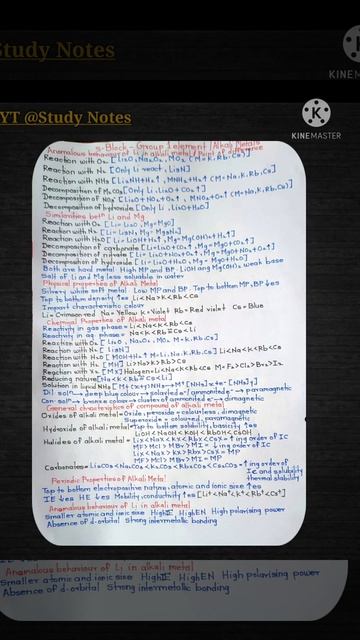 Study Notes
KINEM
YT @Study Notes
KINEMASTER
s-Block - Group 1 element (Alkali Metals
Anomalous behaviour of Li in alkali metal / Point of difference
Reaction with O₂ [Li₂O, Na₂O₂, MO₂ (M=K,Rb,Cs)]
Reaction with N₂ [Only Li react, Li₃N]
Reaction with NH₃
Decomposition of M₂CO₃ [Only Li, Li₂O+CO₂↑]
Decomposition of NO₃⁻
Decomposition of hydroxide [Only Li, Li₂O+H₂O]
Similarities betⁿ Li and Mg
Reaction with O₂ [Li=Li₂O, Mg=MgO]
Reaction with N₂ [Li=Li₃N, Mg=Mg₃N₂]
Reaction with H₂O
Decomposition of carbonate [Li=Li₂O+CO₂↑, Mg=MgO+CO₂↑]
Decomposition of nitrate
Decomposition of hydroxide [Li=Li₂O+H₂O, Mg=MgO+H₂O]
Both are hard metal High MP and BP. LiOH and Mg(OH)₂ weak base
Salt of Li and Mg less soluble in water
Physical properties of Alkali Metal
Silvery white soft metal Low MP and BP. Top to bottom MP,BP↓es
Top to bottom density ↑es Li<Na>K<Rb<Cs
Impart characteristic colour
Li=Crimson red Na=Yellow K=Violet Rb=Red violet Cs=Blue
Chemical Properties of Alkali metal
Reactivity in gas phase = Li<Na<K<Rb<Cs
Reactivity in aq. phase =
Reaction with O₂ [Li₂O, Na₂O₂, MO₂ M=K,Rb,Cs]
Reaction with N₂ [Li₃N]
Reaction with H₂O [MOH+H₂↑ M=Li,Na,K,Rb,Cs] Li<Na<K<Rb<Cs
Reaction with H₂ [MH] Li>Na>K>Rb>Cs
Reaction with X₂ [MX] Halogen = Li<Na<K<Rb<Cs M=F₂>Cl₂>Br₂>I₂
Reducing nature [Na<K<Rb<Cs<Li]
Solution in liquid NH₃
Dil solⁿ → deep blue colour → → paramagnetic
Con solⁿ → bronze colour → cluster of ammoniated e⁻ → diamagnetic
General characteristics of compound of alkali metal
Oxides of alkali metal = Oxide, peroxide = colourless, dimagnetic
Superoxide = coloured, paramagnetic
Hydroxide of alkali metal = Top to bottom solubility, basicity ↑es
LiOH<NaOH<KOH<RbOH<CsOH
Halides of alkali metal = LiX<NaX<KX<RbX<CsX = ↑ing order of IC
MF>MCl>MBr>MI = ↓ing order of IC
LiX<NaX>KX>RbX>CsX = MP
MF>MCl>MBr>MI = MP
Carbonates = Li₂CO₃<Na₂CO₃<K₂CO₃<Rb₂CO₃<Cs₂CO₃ = ↑ing order of
IC and solubility
thermal stability
Periodic Properties of Alkali Metal
Top to bottom electropositive nature, atomic and ionic size ↑es
IE ↓es HE ↓es Mobility, conductivity ↑es [Li⁺<Na⁺<K⁺<Rb⁺<Cs⁺]
Anomalous behaviour of Li in alkali metal
Smaller atomic and ionic size High IE High EN High polarising power
Absence of d-orbital Strong intermetallic bonding
Anomalous behaviour of Li in alkali metal
Smaller atomic and ionic size High IE High EN High polarising power
Absence of d-orbital Strong intermetallic bonding